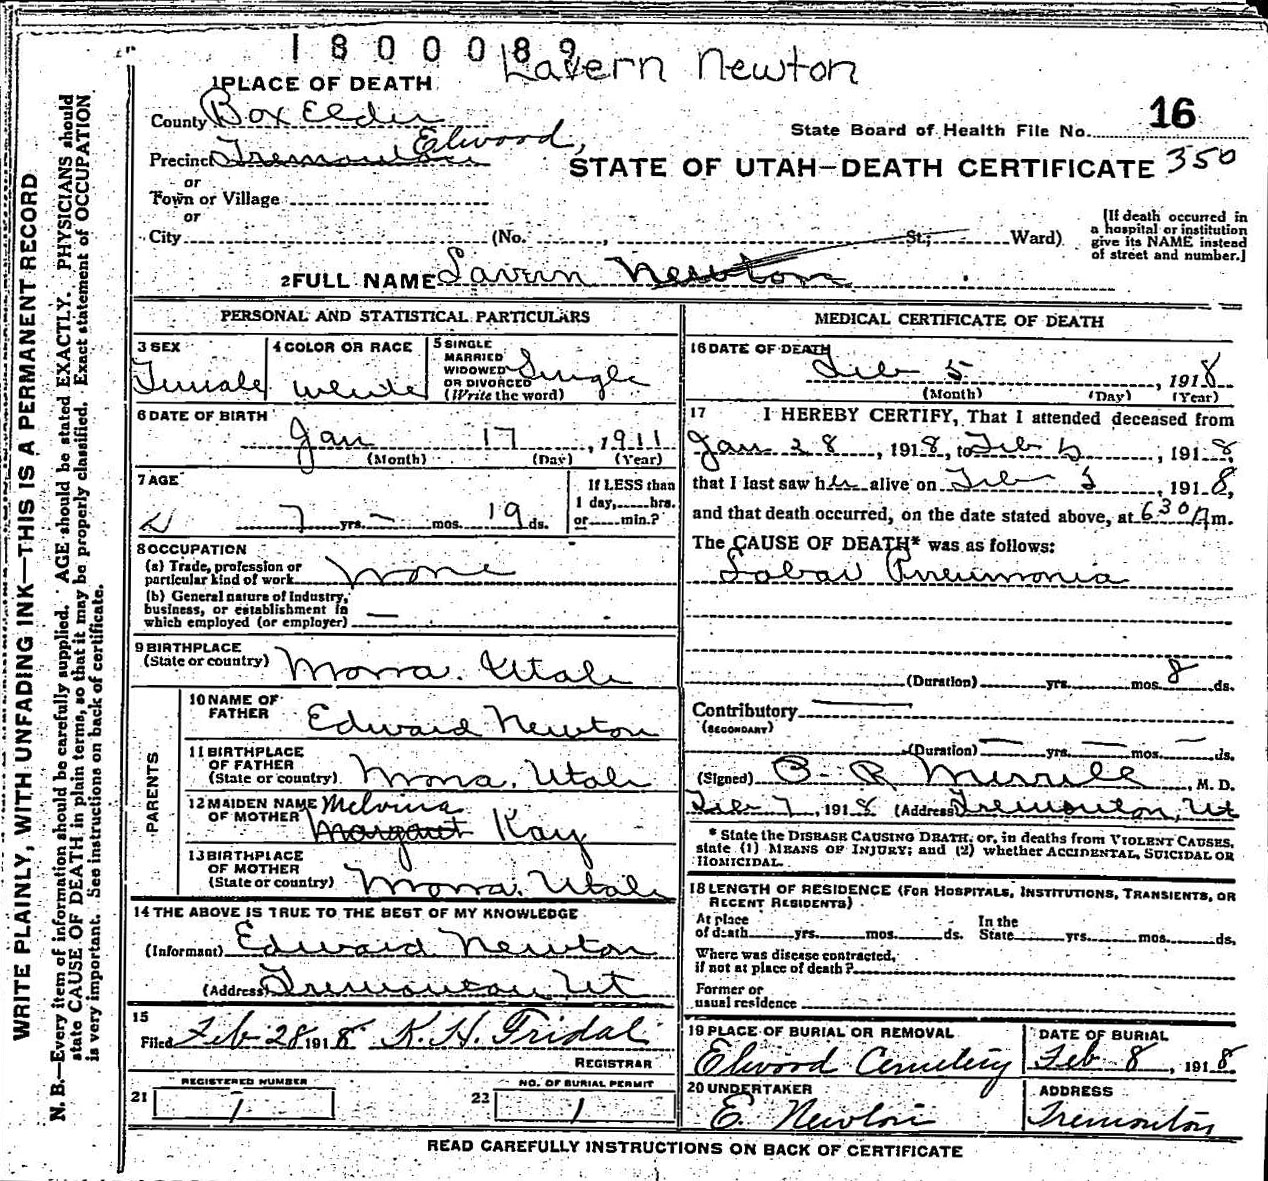 1800089
Lavern Newton
1 PLACE OF DEATH
County Box Elder
State Board of Health File No. 16
Precinct Tremonton Elwood,
STATE OF UTAH—DEATH CERTIFICATE 350
or
Town or Village
or
City (No. , St.; Ward)
[If death occurred in
a hospital or institution
give its NAME instead
of street and number.]
2 FULL NAME Lavern Newton
PERSONAL AND STATISTICAL PARTICULARS
3 SEX
Female
4 COLOR OR RACE
White
5 SINGLE
MARRIED
WIDOWED
OR DIVORCED
(Write the word)
Single
6 DATE OF BIRTH
Jan 17, 1911
(Month) (Day) (Year)
7 AGE
7 yrs. — mos. 19 ds.
If LESS than
1 day, hrs.
or min.?
8 OCCUPATION
(a) Trade, profession or
particular kind of work None
(b) General nature of Industry,
business, or establishment in
which employed (or employer) —
9 BIRTHPLACE
(State or country) Mona. Utah
PARENTS
10 NAME OF
FATHER Edward Newton
11 BIRTHPLACE
OF FATHER
(State or country) Mona, Utah
12 MAIDEN NAME Melvina
OF MOTHER Margaret Kay
13 BIRTHPLACE
OF MOTHER
(State or country) Mona, Utah
14 THE ABOVE IS TRUE TO THE BEST OF MY KNOWLEDGE
(Informant) Edward Newton
(Address) Tremonton, Ut
15
Filed Feb 28 1918 K. H. Fridal
REGISTRAR
REGISTERED NUMBER
21 1
NO. OF BURIAL PERMIT
22 1
MEDICAL CERTIFICATE OF DEATH
16 DATE OF DEATH
Feb 5, 1918
(Month) (Day) (Year)
17 I HEREBY CERTIFY, That I attended deceased from
Jan 28, 1918, to Feb 5, 1918,
that I last saw her alive on Feb 5, 1918,
and that death occurred, on the date stated above, at 630 A m.
The CAUSE OF DEATH* was as follows:
Lobar Pneumonia
(Duration) yrs. mos. 8 ds.
Contributory —
(SECONDARY)
(Duration) — yrs. — mos. — ds.
(Signed) Merrill, M. D.
Feb 7, 1918 (Address) Tremonton, Ut
* State the DISEASE CAUSING DEATH, or, in deaths from VIOLENT CAUSES,
state (1) MEANS OF INJURY; and (2) whether ACCIDENTAL, SUICIDAL OR
HOMICIDAL.
18 LENGTH OF RESIDENCE (FOR HOSPITALS, INSTITUTIONS, TRANSIENTS, OR
RECENT RESIDENTS)
At place In the
of death yrs. mos. ds. State yrs. mos. ds.
Where was disease contracted,
if not at place of death?
Former or
usual residence
19 PLACE OF BURIAL OR REMOVAL
Elwood Cemetery
DATE OF BURIAL
Feb 8, 1918
20 UNDERTAKER
E. Newton
ADDRESS
Tremonton
READ CAREFULLY INSTRUCTIONS ON BACK OF CERTIFICATE
WRITE PLAINLY, WITH UNFADING INK—THIS IS A PERMANENT RECORD
N. B.—Every item of information should be carefully supplied. AGE should be stated EXACTLY. PHYSICIANS should
state CAUSE OF DEATH in plain terms, so that it may be properly classified. Exact statement of OCCUPATION
is very important. See instructions on back of certificate.